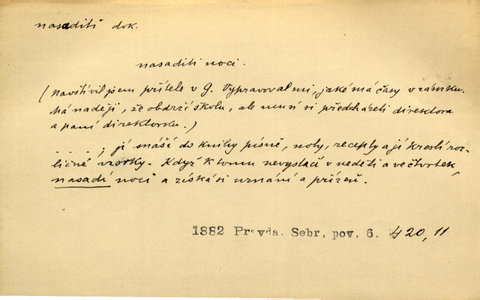 nasaditi dok.
nasaditi noci.
(Navštívil jsem přítele v G. Vypravoval mi, jaké má časy v zámku.
Má naději, že obdrží školu, ale musí si předcházeti direktora
a paní direktorku.)
. . . . , jí snáší do knihy písně, noty, recepty a jí kreslí roz-
ličné vrotky. Když k tomu nevystačí v neděli a ve čtvrtek,
nasadí noci a získá si uznání a přízeň.
1882 Pravda. Sebr. pov. 6. 420, 11